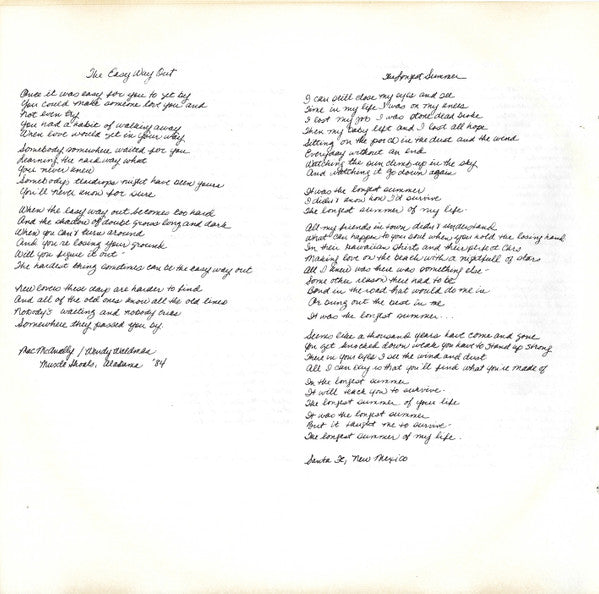 The Easy Way Out
Once it was easy for you to get by
You could make someone love you and
Not even try
You had a habit of walking away
When love would get in your way
Somebody somewhere waited for you
Learning the hard way what
You never knew
Somebody's teardrops might have been yours
You'll never know for sure
When the easy way out becomes too hard
And the shadow of doubt grows long and dark
When you can't turn around
And you're losing your ground
Will you figure it out -
The hardest thing sometimes can be the easy way out
New loves these days are harder to find
And all of the old ones know all the old lines
Nobody's waiting and nobody cries
Somewhere they passed you by.
Mac McAnally / Wendy Waldman
Muscle Shoals, Alabama '84
The Longest Summer
I can still close my eyes and see
Time in my life I was on my knees
I lost my job I was stone dead broke
Then my baby left and I lost all hope
Sitting on the porch in the dust and the wind
Everyday without an end
Watching the sun climb up in the sky
And watching it go down again
It was the longest summer
I didn't know how I'd survive
The longest summer of my life.
All my friends in town didn't understand
What can happen to your soul when you hold the losing hand
In their Hawaiian shirts and their perfect cars
Making love on the beach with a nightfull of stars
All I knew was there was something else -
Some other reason there had to be
Bend in the road that would do me in
Or bring out the best in me
It was the longest summer...
Seems like a thousand years have come and gone
You get knocked down weak you have to stand up strong
There in your eyes I see the wind and dust
All I can say is that you'll find what you're made of
In the longest summer
It will teach you to survive -
The longest summer of your life
It was the longest summer
But it taught me to survive -
The longest summer of my life.
Santa Fe, New Mexico